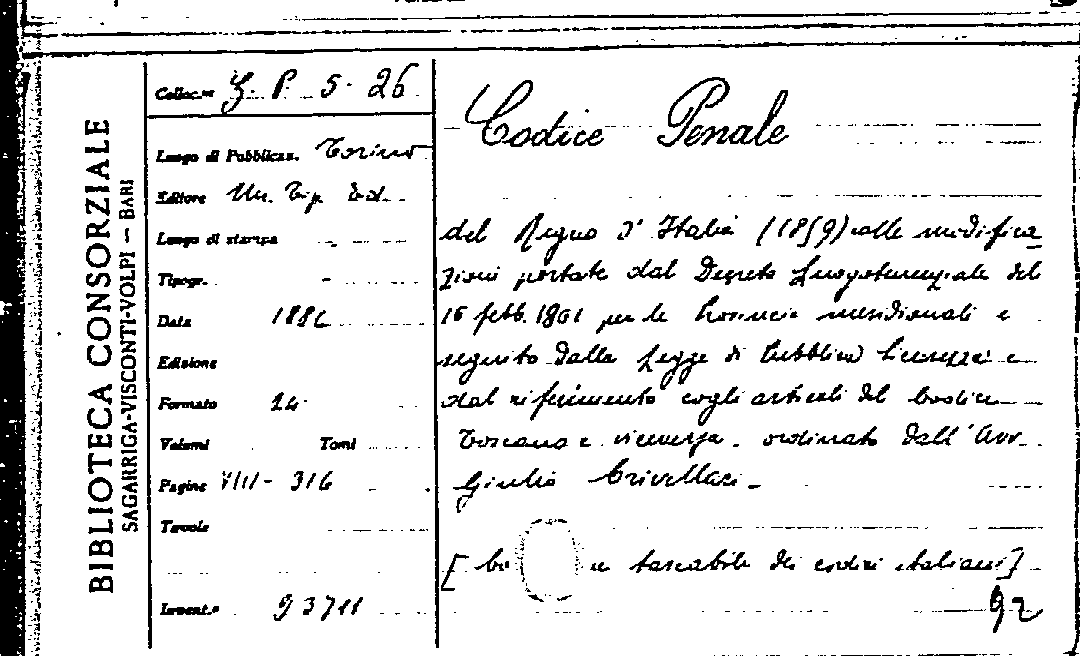 BIBLIOTECA CONSORZIALE
SAGARRIGA-VISCONTI-VOLPI - BARI
Colloc.ne G. P. 5-26
Luogo di Pubblicaz. Torino
Editore Un. Tip. Ed.
Luogo di stampa -
Tipogr. -
Data
Edizione
Formato
Volumi Tomi
Pagine VIII-316
Tavole
Invent.º 93711
Codice Penale
del Regno d'Italia (1859) colle modifica
zioni portate dal Decreto Luogotenenziale del
febb. 1861 per le Provincie meridionali e
seguito dalla Legge di Pubblica Sicurezza e
dal riferimento cogli articoli del Codice
Toscano e viceversa. ordinato dall'Avv.
Giulio Crivellari -
tascabile dei codici italiani]
92